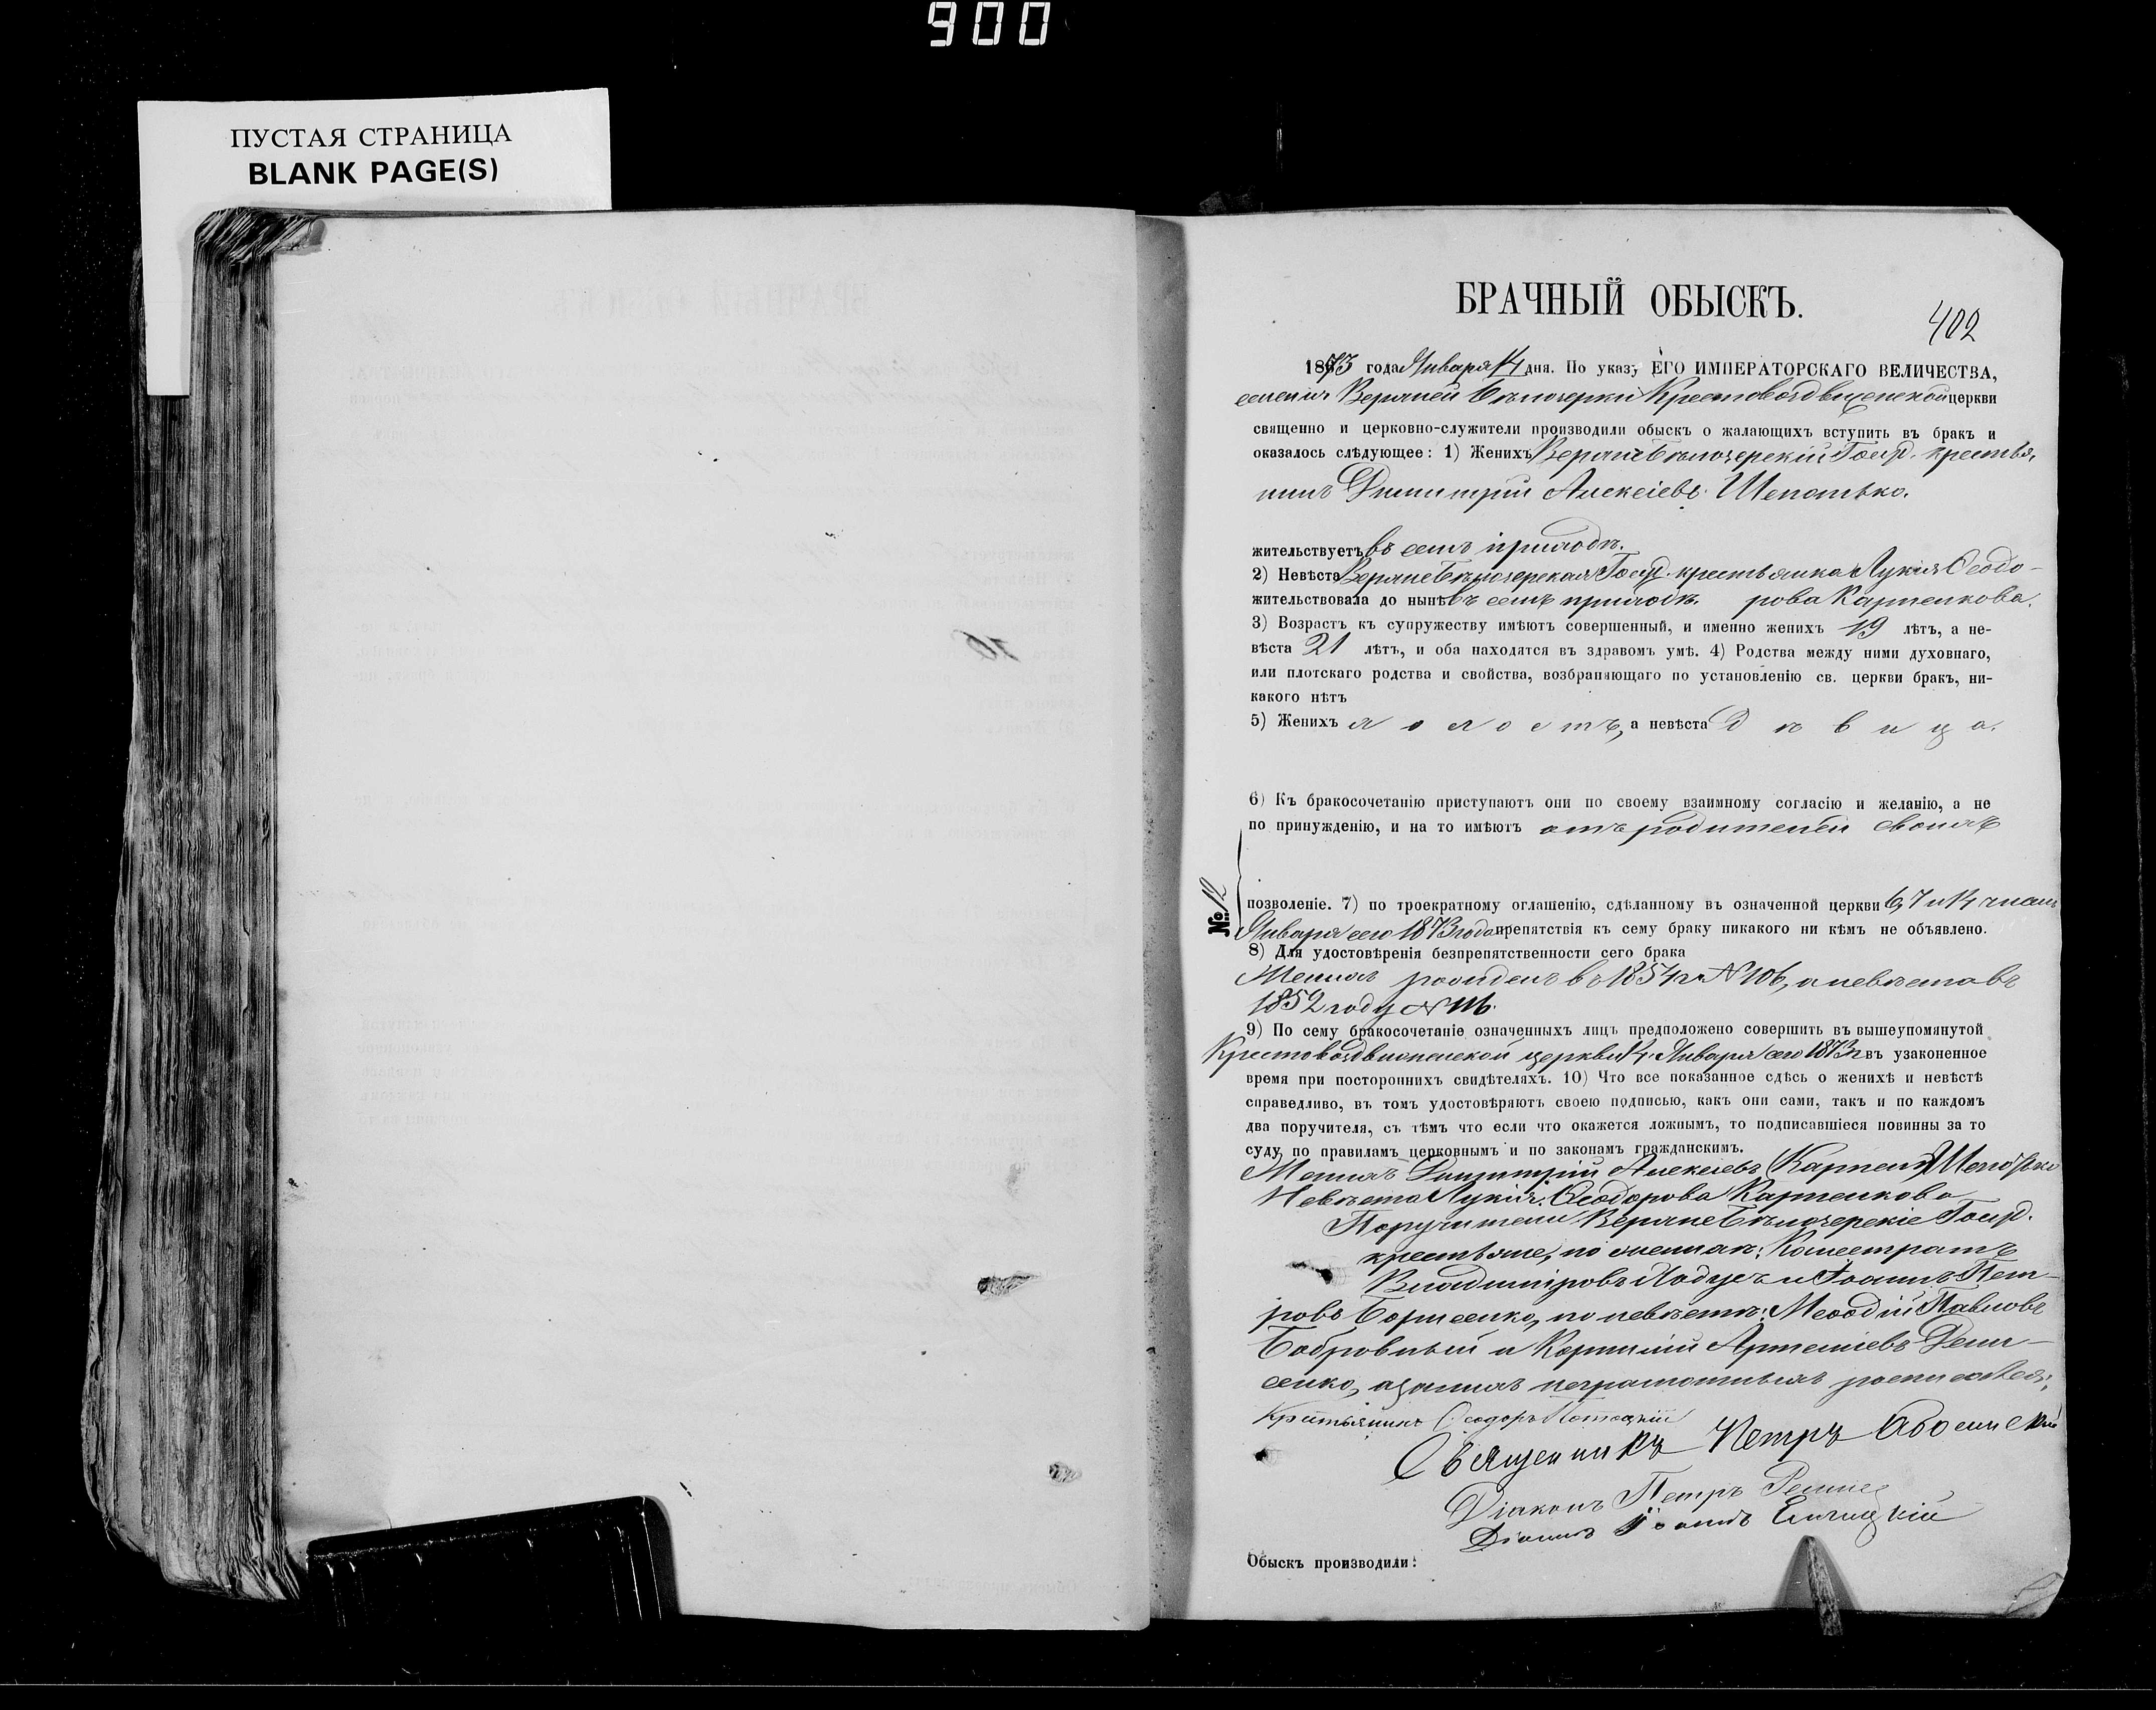 900
ПУСТАЯ СТРАНИЦА
BLANK PAGE(S)
БРАЧНЫЙ ОБЫСКЪ.
402
1873 года Января 14 дня. По указу ЕГО ИМПЕРАТОРСКАГО ВЕЛИЧЕСТВА,
селенія Верхней Бѣлозерки Крестовоздвиженской церкви
священно и церковно-служители производили обыскъ о жалающихъ вступить въ бракъ и
оказалось слѣдующее: 1) Женихъ Верхнебѣлозерскій Госуд. крестья-
нинъ Димитрій Алексіевъ Шепотько.
жительствуетъ въ семъ приходѣ.
2) Невѣста Верхнебѣлозерская Госуд. крестьянка Лукія Ѳеодо-
жительствовала до нынѣ въ семъ приходѣ. рова Карпенкова.
3) Возрастъ къ супружеству имѣютъ совершенный, и именно женихъ 19 лѣтъ, а не-
вѣста 21 лѣтъ, и оба находятся въ здравомъ умѣ. 4) Родства между ними духовнаго,
или плотскаго родства и свойства, возбраняющаго по установленію св. церкви бракъ, ни-
какого нѣтъ
5) Женихъ холостъ, а невѣста дѣвица.
6) Къ бракосочетанію приступаютъ они по своему взаимному согласію и желанію, а не
по принужденію, и на то имѣютъ отъ родителей своихъ
№ 12
позволеніе. 7) по троекратному оглашенію, сдѣланному въ означенной церкви 6, 7 и 14 числъ
Января сего 1873 года препятствія къ сему браку никакого ни кѣмъ не объявлено.
8) Для удостовѣренія безпрепятственности сего брака
Женихъ рожденъ въ 1854 г. № 106, а невѣста въ
1852 году № 116.
9) По сему бракосочетаніе означенныхъ лицъ предположено совершить въ вышеупомянутой
Крестовоздвиженской церкви 14 Января сего 1873 г. въ узаконенное
время при постороннихъ свидѣтеляхъ. 10) Что все показанное сдѣсь о женихѣ и невѣстѣ
справедливо, въ томъ удостовѣряютъ своею подписью, какъ они сами, такъ и по каждомъ
два поручителя, съ тѣмъ что если что окажется ложнымъ, то подписавшіеся повинны за то
суду по правиламъ церковнымъ и по законамъ гражданскимъ.
Женихъ Димитрій Алексіевъ (Карпен) Шепотько
Невѣста Лукія Ѳеодорова Карпенкова
Поручители Верхнебѣлозерскіе Госуд.
крестьяне, по женихѣ: Калистратъ
Владиміровъ и Іоаннъ Пет-
ровъ Борисенко, по невѣстѣ: Меѳодій Павловъ
Бобровный и Корнилій Артеміевъ Дени-
сенко, а за нихъ неграмотныхъ росписался:
Крестьянинъ Ѳеодоръ Потоцкій
Священникъ Петръ
Діаконъ Петръ
Іоаннъ
Обыскъ производили: